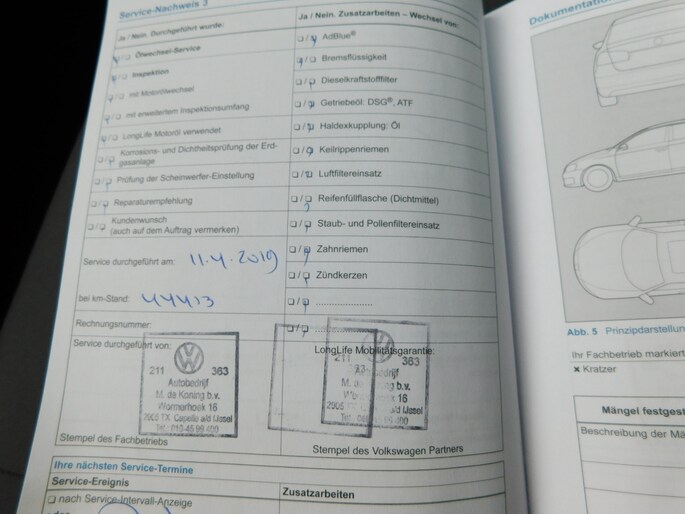 Service-Nachweis 3
Ja / Nein. Durchgeführt wurde:
Ölwechsel-Service
Inspektion
mit Motorölwechsel
mit erweitertem Inspektionsumfang
LongLife Motoröl verwendet
Korrosions- und Dichtheitsprüfung der Erd-
gasanlage
Prüfung der Scheinwerfer-Einstellung
Reparaturempfehlung
Kundenwunsch
(auch auf dem Auftrag vermerken)
Service durchgeführt am: 11.4.2019
bei km-Stand: 44413
Rechnungsnummer:
Service durchgeführt von:
211 363
Autobedrijf
M. de Koning b.v.
Wormerhoek 16
2905 TX Capelle a/d IJssel
Stempel des Fachbetriebs
Ja / Nein. Zusatzarbeiten – Wechsel von:
AdBlue®
Bremsflüssigkeit
Dieselkraftstofffilter
Getriebeöl: DSG®, ATF
Haldexkupplung: Öl
Keilrippenriemen
Luftfiltereinsatz
Reifenfüllflasche (Dichtmittel)
Staub- und Pollenfiltereinsatz
Zahnriemen
Zündkerzen
....................
LongLife Mobilitätsgarantie:
211 363
Stempel des Volkswagen Partners
Ihre nächsten Service-Termine
Service-Ereignis
Zusatzarbeiten
nach Service-Intervall-Anzeige
Abb. 5 Prinzipdarstellun
Ihr Fachbetrieb markiert
× Kratzer
Mängel festgest
Beschreibung der Mä